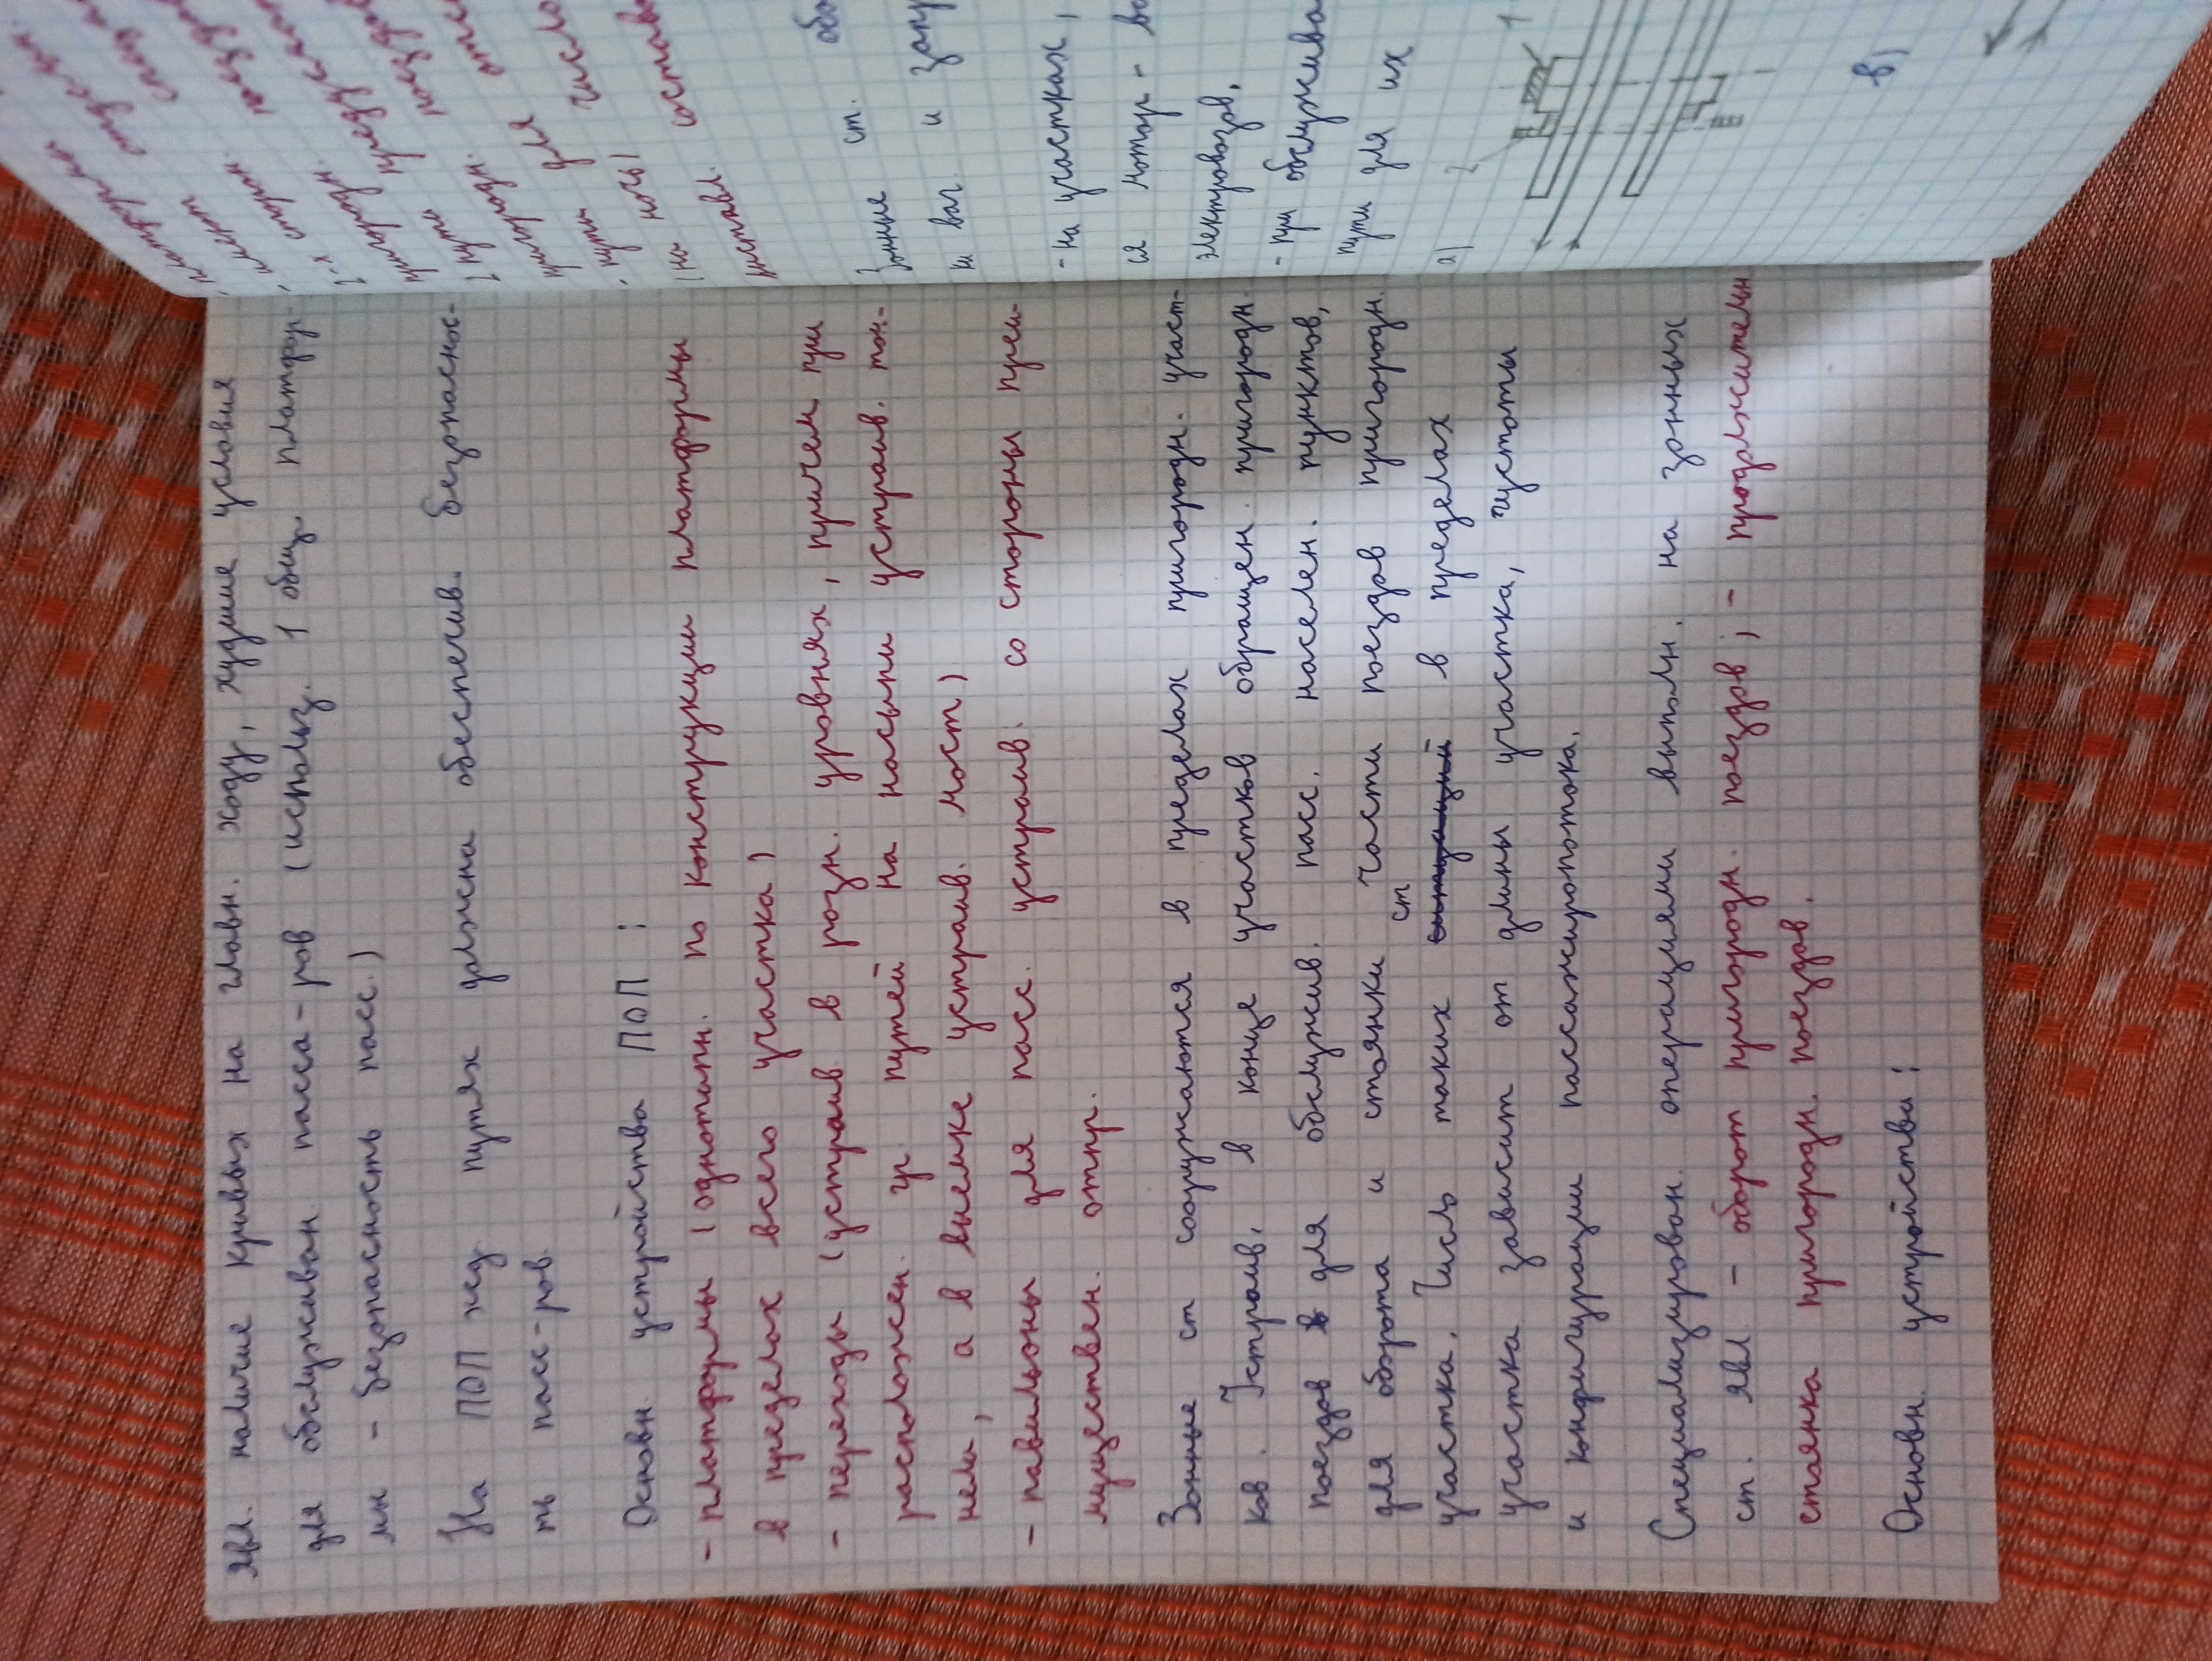 явл. наличие кривых на главн. ходу, худшие условия
для обслуживан пасса-ров (использ. 1 общ. платфор-
мы - безопасность пасс.)
На ПОП жд путях должна обеспечив. безопаснос-
ть пасс-ров
Основн устройства ПОП:
- платформы (однотипн. по конструкции платформы
в пределах всего участка)
- переходы (устраив в розн. уровнях, причем при
расположен. ур путей на насыпи устраив. тон-
нели, а в выемке устраив. мост)
- павильоны для пасс. устраив. со стороны преи-
муществен. отпр.
Зонные ст сооружаются в пределах пригородн. участ-
ков. Устраив. в конце участков обращен. пригородн.
поездов для обслужив. пасс. населен. пунктов,
для оборота и стоянки части поездов пригородн.
участка. Число таких ст в пределах
участка зависит от длины участка, густоты
и конфигурации пассажиропотока.
Специализирован. операциями выполн. на зонных
ст. явл. - оборот пригородн. поездов; - продолжительн
стоянка пригородн. поездов.
Основн. устройства:
платформы
имеют
2-х сторон.
пригородн.
пути
пригородн.
для число
- пути
(на ночь) состав
Зонные ст.
ки ваг. и
- на участках,
ся мотор-
электровозов,
- при обслужива
пути для их
а) 2 1
в)